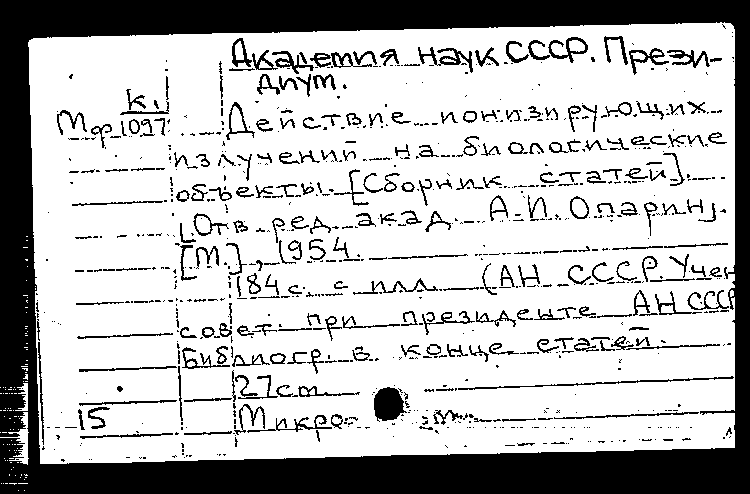 Академия наук СССР. Прези-
диум.
К.
Мф 1097
Действие ионизирующих
излучений на биологические
объекты. [Сборник статей].
[Отв. ред. акад. А.И. Опарин].
[М.], 1954.
184 с. с илл. (АН СССР. Учен
совет. при президенте АН СССР
Библиогр. в конце статей.
27 cm.
15
Микро-